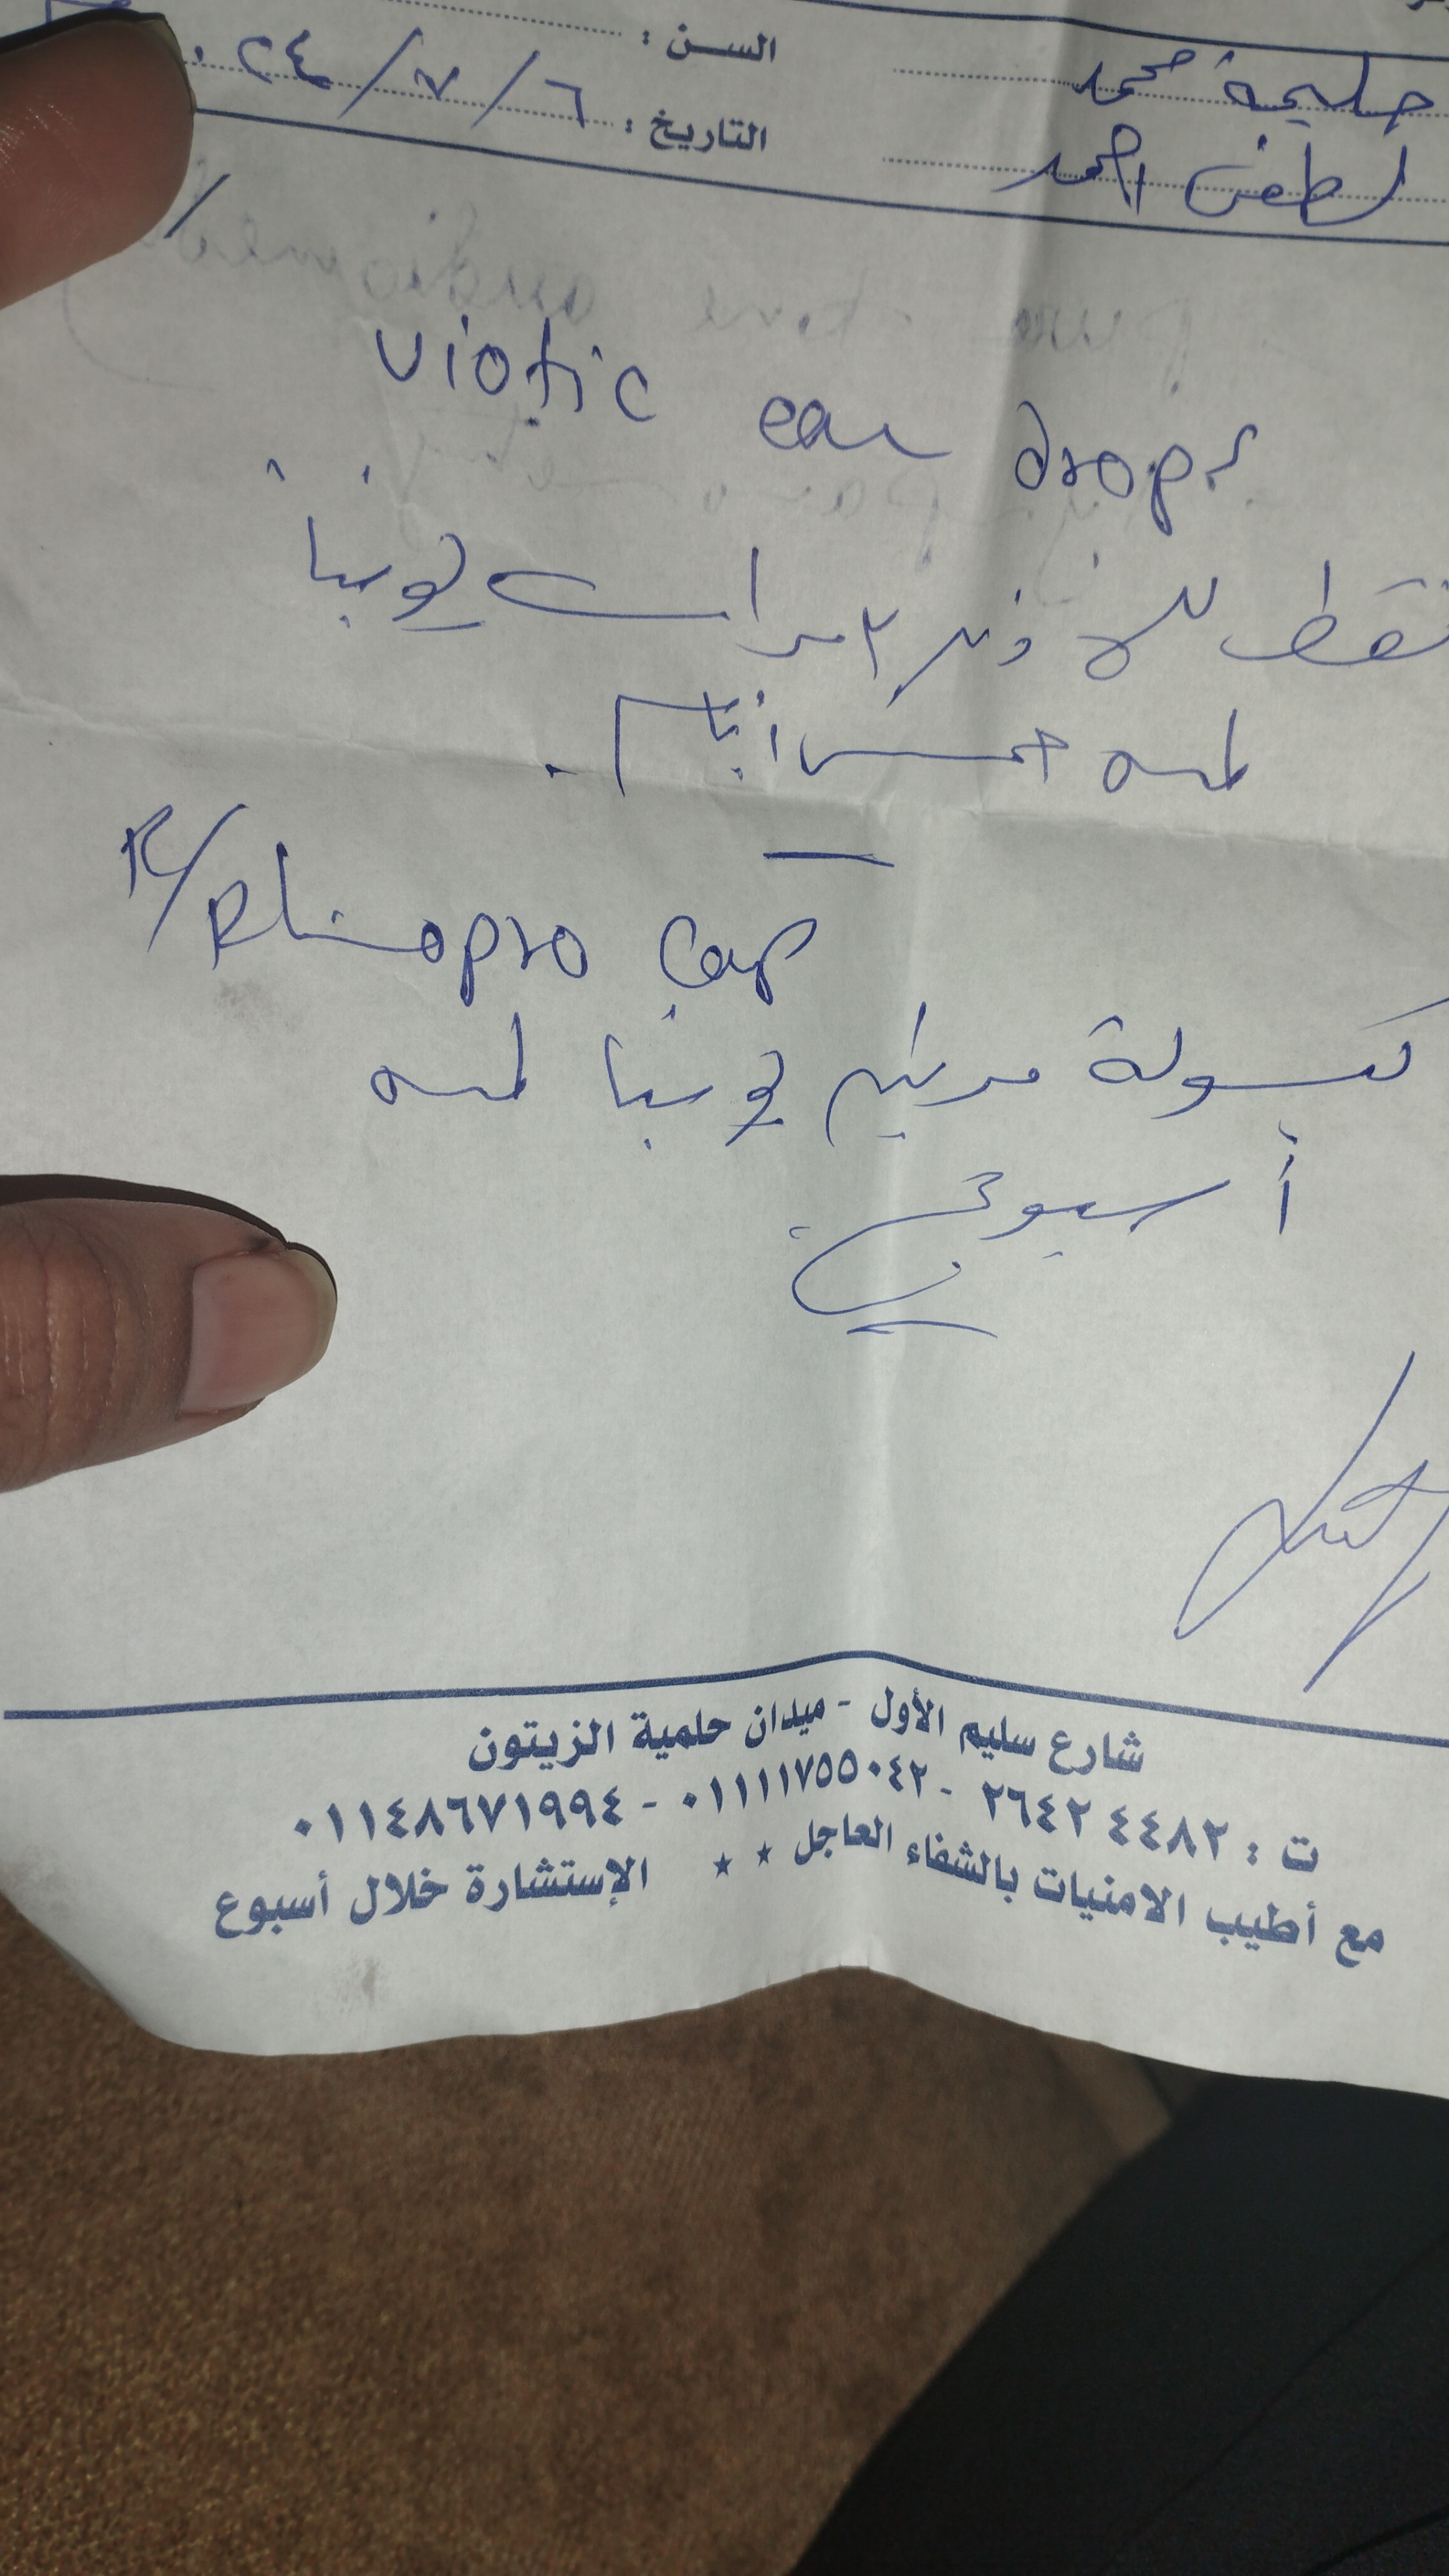 حليمة محمد السن :
لطفى احمد التاريخ : ٦ / ٧ / ٢٤
viotic ear drops
نقط للأذن ٣ مرات يوميا
لمدة خمس أيام .
R/ Rhinopro Cap
كبسولة مرتين يوميا لمدة
أسبوع
شارع سليم الأول - ميدان حلمية الزيتون
ت : ٢٦٤٢٤٤٨٢ - ٠١١١١٧٥٥٠٤٢ - ٠١١٤٨٦٧١٩٩٤
مع أطيب الامنيات بالشفاء العاجل ★ ★ الإستشارة خلال أسبوع